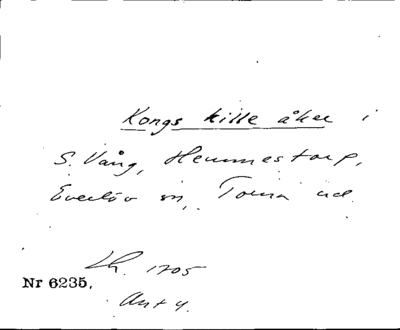 Kongs kille åker i
S. Vång, Hemmestorp,
Everlöv sn, Torna hd.
Lh. 1705
Nr 6235,
Akt 4.